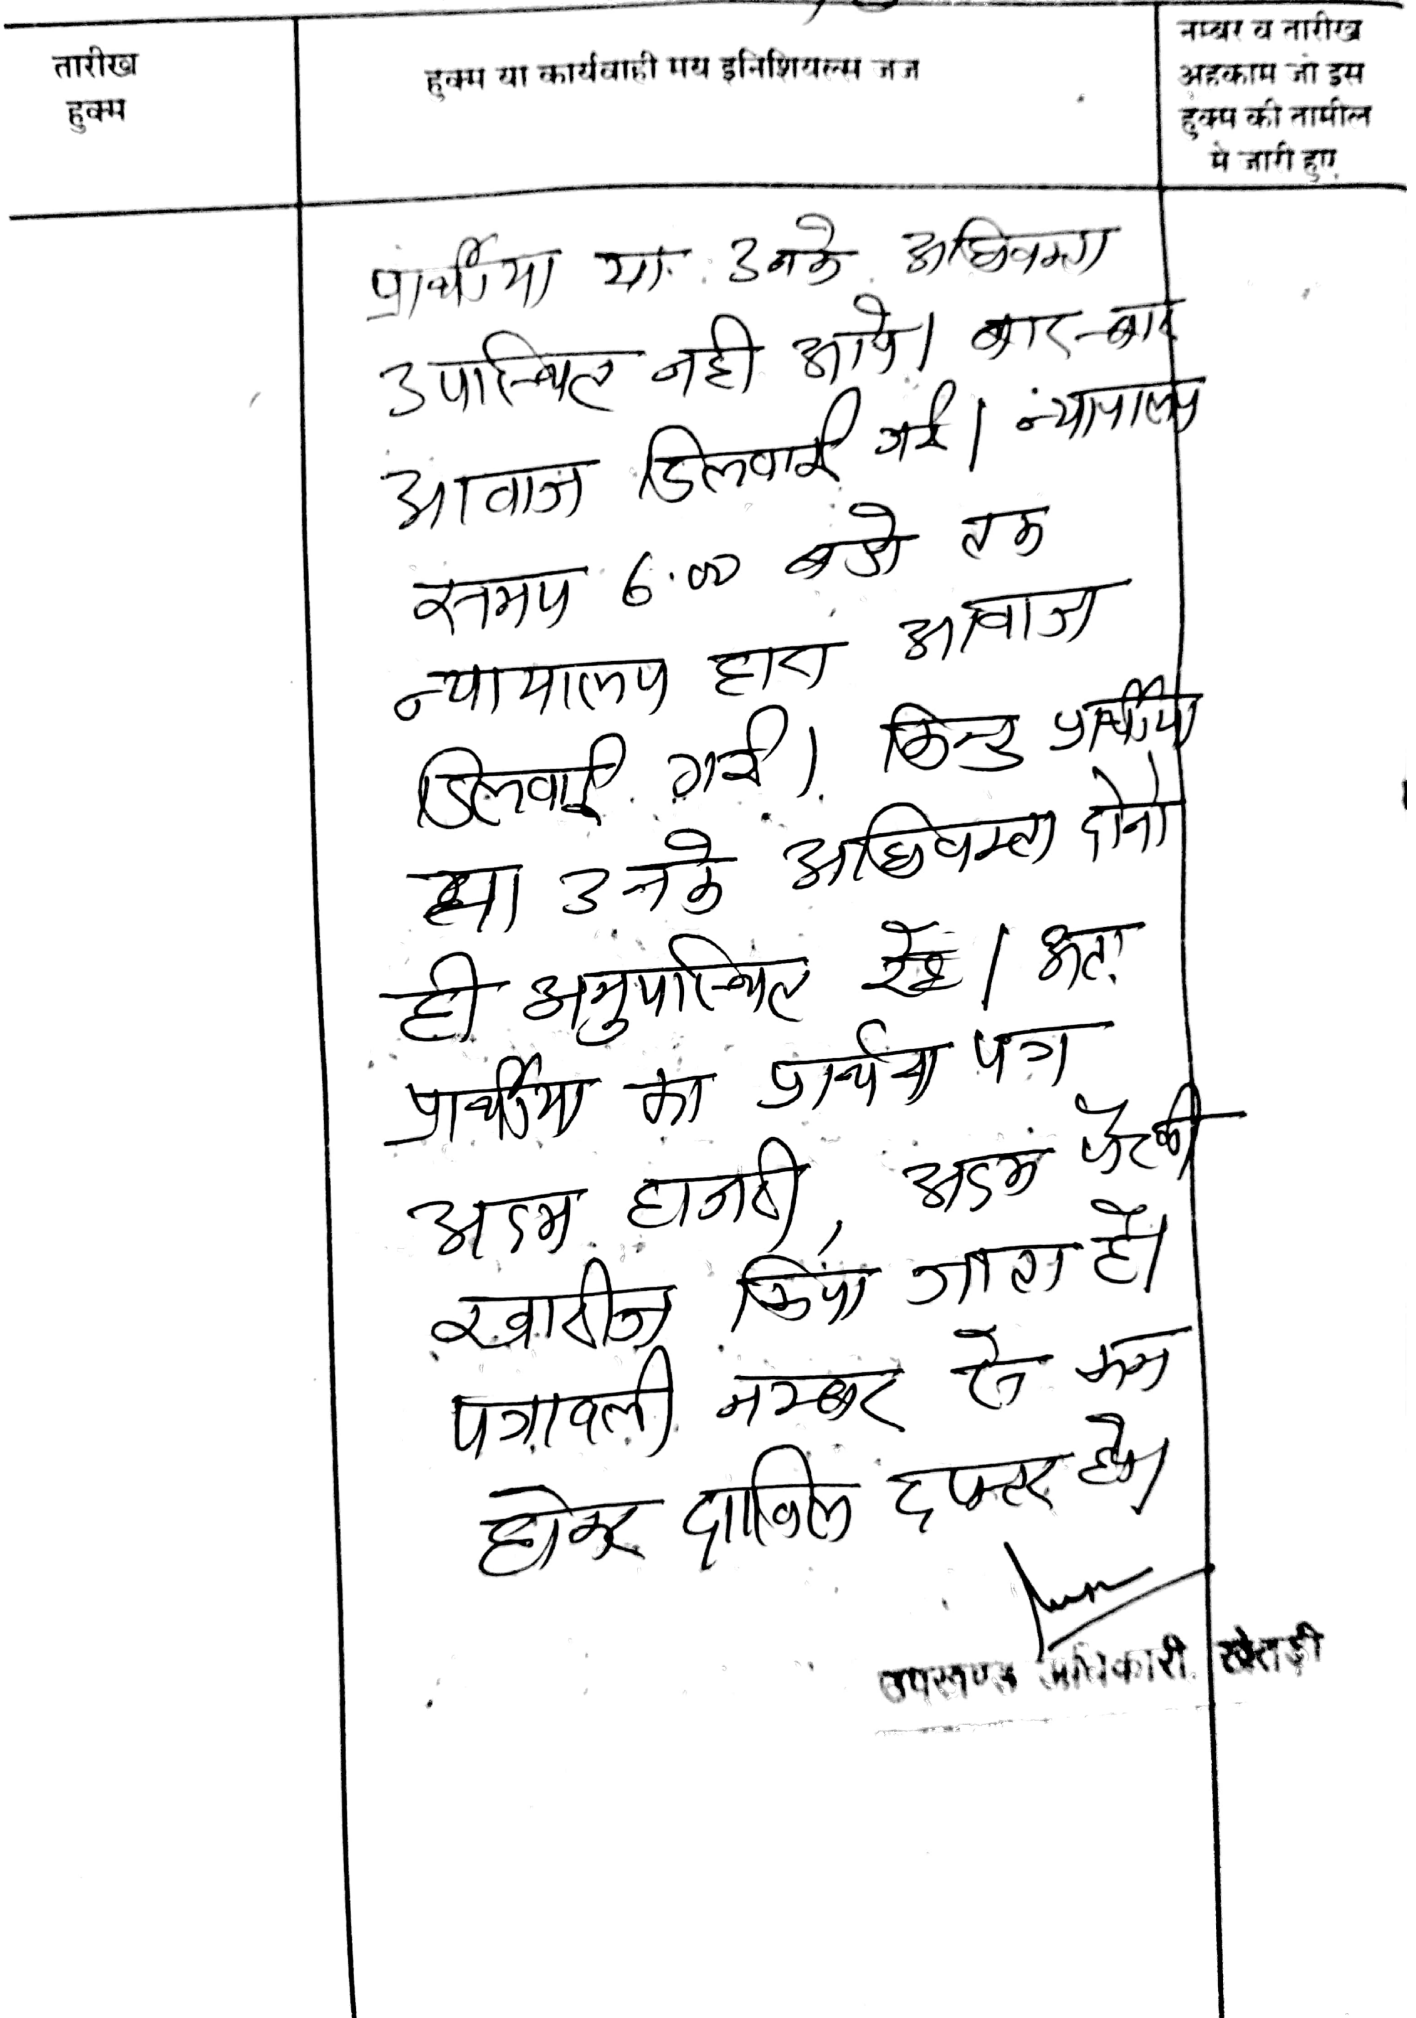 तारीख
हुक्म
हुक्म या कार्यवाही मय इनिशियल्स जज
नम्बर व तारीख
अहकाम जो इस
हुक्म की तामील
में जारी हुए
प्रार्थीया या उनके अधिवक्ता
उपस्थित नही आये। बार-बार
आवाज दिलवाई गई। न्यायालय
समय 6.00 बजे तक
न्यायालय द्वारा आवाज
दिलवाई गई। किन्तु प्रार्थीया
या उनके अधिवक्ता दोनो
ही अनुपस्थित रहे। अतः
प्रार्थीया का प्रार्थना पत्र
अदम हाजरी, अदम पैरवी
खारीज किया जाता है।
पत्रावली नम्बर से कम
होकर दाखिल दफ्तर हो।
उपखण्ड अधिकारी खेतड़ी